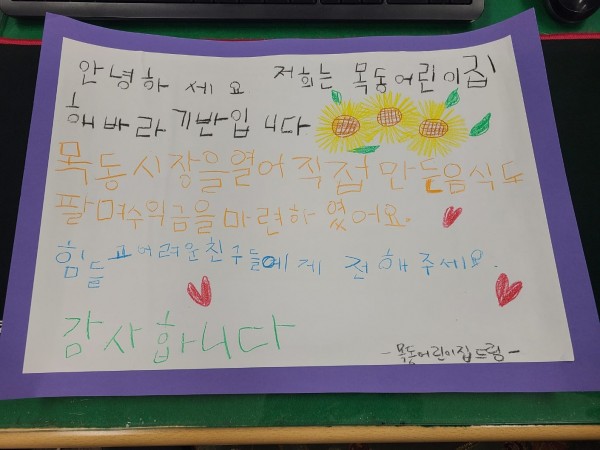 안녕하세요 저희는 목동어린이집
해바라기반입니다
목동시장을열어 직접 만든음식도
팔며수익금을마련하였어요.
힘들고어려운친구들에게 전해주세요.
감사합니다
- 목동어린이집드림 -